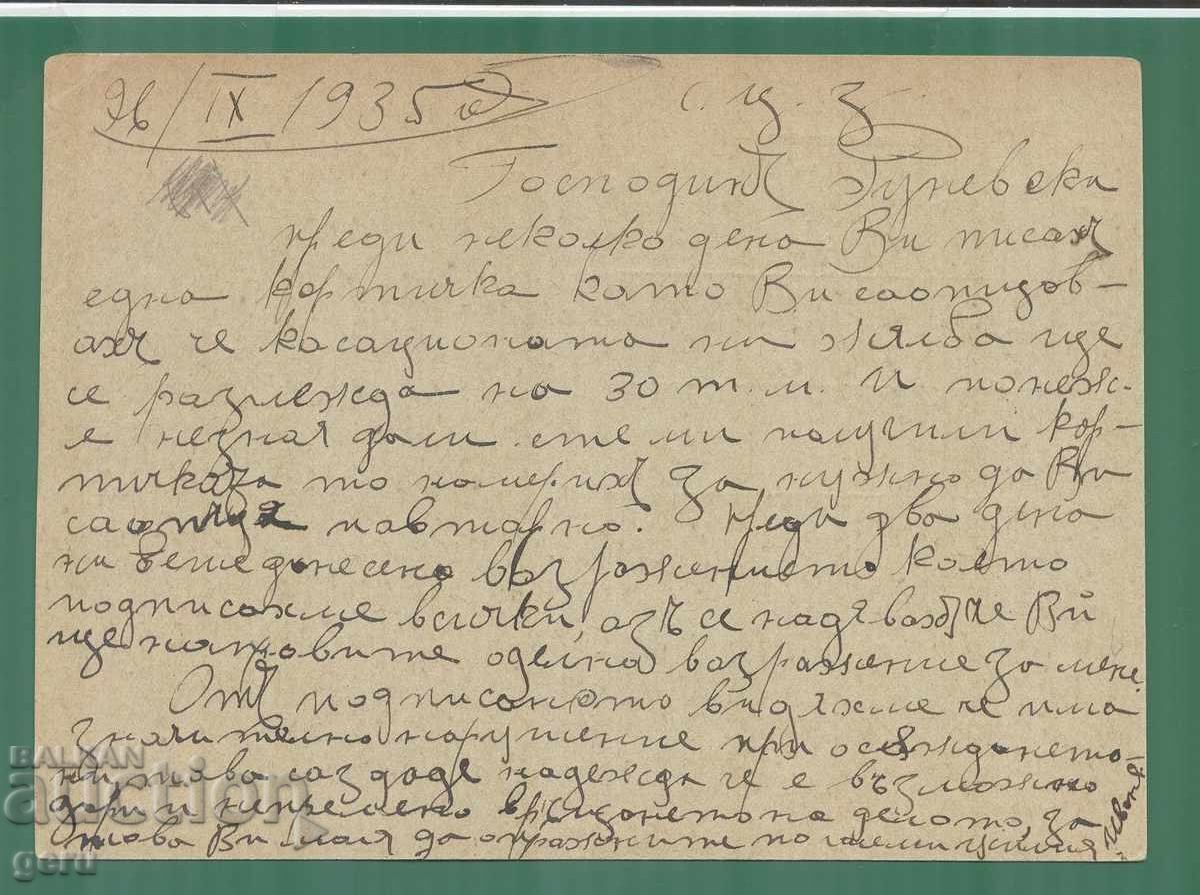 26/IX 1935 г.
с. Ц. З.
Господинъ Гуневски
преди неколко дена Ви писахъ
една картичка като Ви саопщов-
ахъ че касационата ни жялба ще
се разглежда на 30 т. м. И понеж-
е незная дали сте ми получили кар-
тичката то намерихъ за нужно да Ви
саопщя павтарно. Преди два дена
ни беше донесено възражението което
подписахме всички, азъ се надявахъ че Ви
ще напровите оделна възражение за мене.
Отъ подписаното видяхме че има
значително нарушение при осъждането
ни, това саздаде надежда че е възможно
дори и непремено връщането на делото, за
това Ви моля да опражните по големи усилия
Иванъ
BALKAN
auction
geru